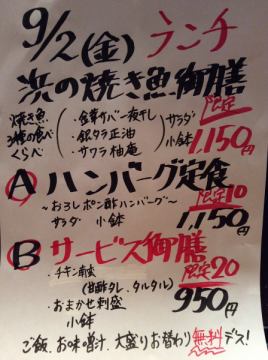 9/2(金) ランチ
浜の焼き魚御膳
焼き魚 3種の食べくらべ
・金華サバ一夜干し
・銀タラ正油
・サワラ柚庵
サラダ
小鉢
限定
1,150円
A ハンバーグ定食
〜おろしポン酢ハンバーグ〜
限定10
サラダ 小鉢 1,150円
B サービス御膳
・チキン南蛮 限定20
(甘酢タレ、タルタル)
・おまかせ刺盛 950円
小鉢
ご飯、お味噌汁、大盛りお替わり無料デス!